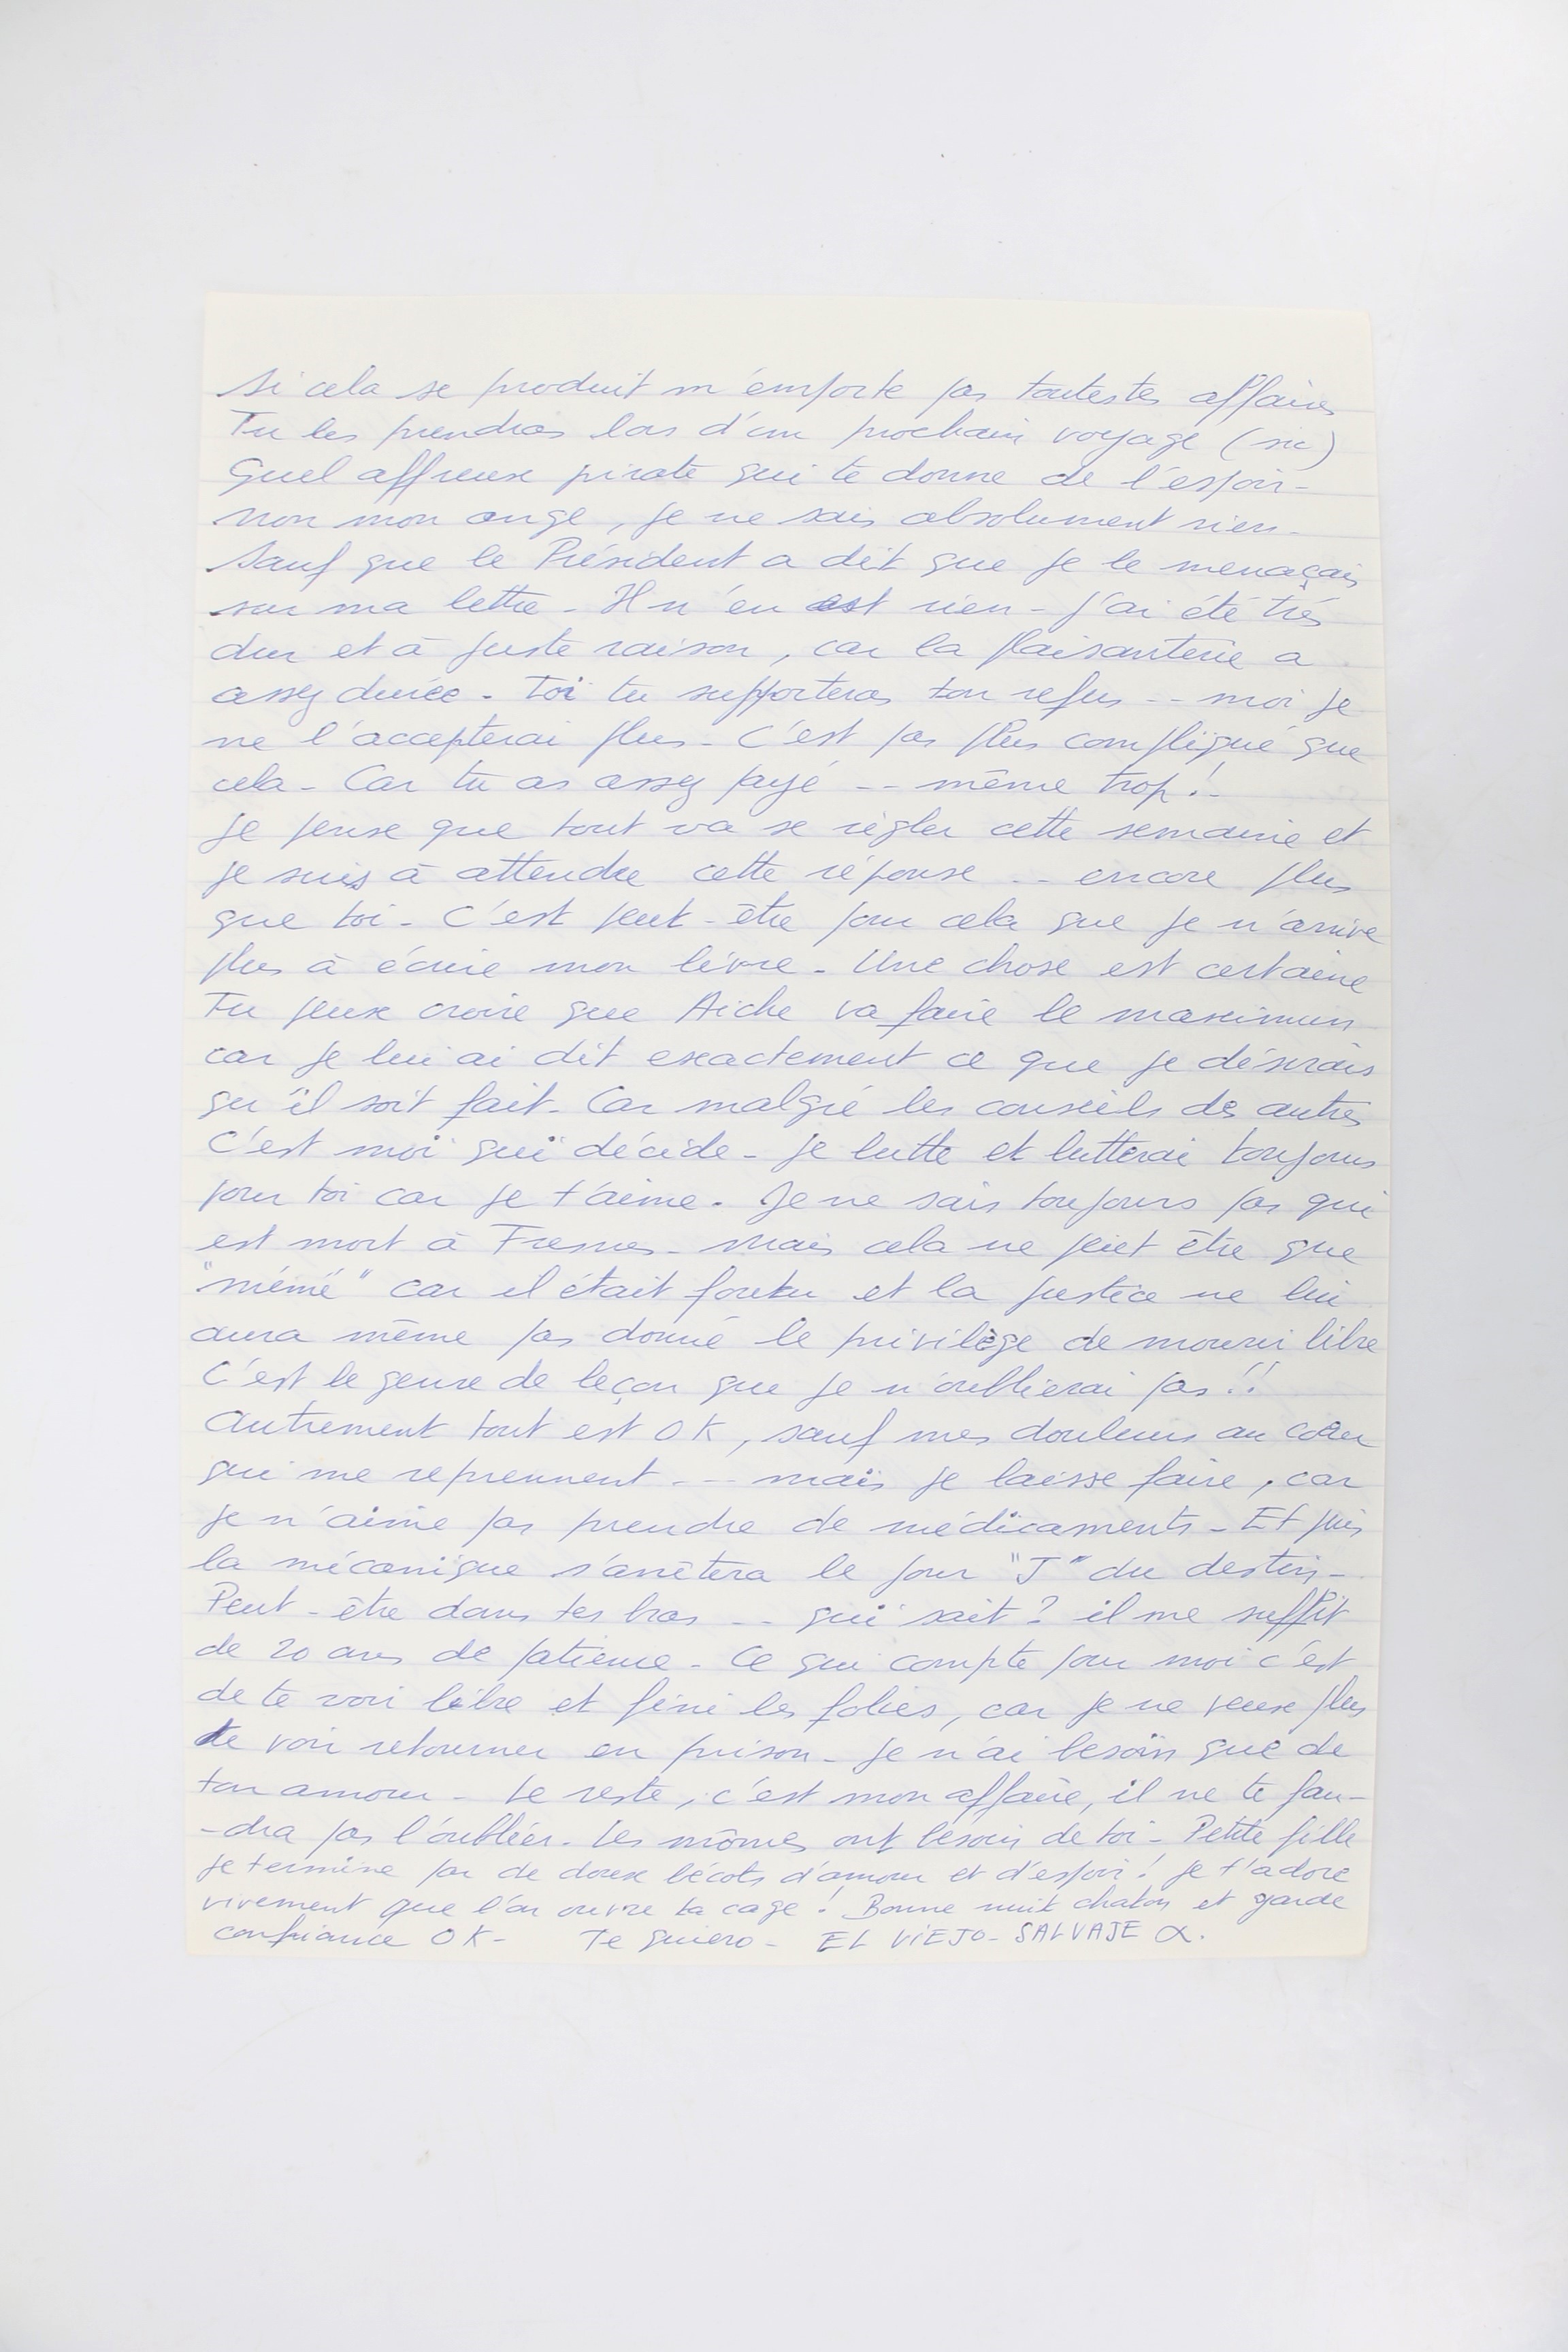 Si cela se produit n'emporte pas toutes tes affaires
Tu les prendras lors d'un prochain voyage (sic)
Quel affreux pirate qui te donne de l'espoir -
non mon ange, je ne sais absolument rien -
Sauf que le Président a dit que je le menaçais
sur ma lettre - Il n'en est rien - j'ai été très
dur et à juste raison, car la plaisanterie a
assez durée - Toi tu supporteras ton refus -- moi je
ne l'accepterai plus - C'est pas plus compliqué que
cela - Car tu as assez payé -- même trop ! -
Je pense que tout va se règler cette semaine et
je suis à attendre cette réponse -- encore plus
que toi - C'est peut-être pour cela que je n'arrive
plus à écrire mon livre - Une chose est certaine
Tu peux croire que Aiche va faire le maximum
car je lui ai dit exactement ce que je désirais
qu'il soit fait - Car malgré les conseils des autres
C'est moi qui décide - Je lutte et lutterai toujours
pour toi car je t'aime - Je ne sais toujours pas qui
est mort à Fresnes - mais cela ne peut être que
"mémé" car il était foutu et la justice ne lui
aura même pas donné le privilège de mourir libre
C'est le genre de leçon que je n'oublierai pas !!
Autrement tout est OK, sauf mes douleurs au cœur
qui me reprennent -- mais je laisse faire, car
je n'aime pas prendre de médicaments - Et puis
la mécanique s'arrêtera le jour "J" du destin -
Peut-être dans tes bras -- qui sait ? il me suffit
de 20 ans de patience - Ce qui compte pour moi c'est
de te voir libre et fini les folies, car je ne veux plus
te voir retourner en prison - Je n'ai besoin que de
ton amour - Le reste, c'est mon affaire, il ne te fau-
-dra pas l'oublier - Les mômes ont besoin de toi - Petite fille
je termine par de doux bécots d'amour et d'espoir ! je t'adore
vivement que l'on ouvre ta cage ! Bonne nuit chaton et garde
confiance OK - Te quiero - EL VIEJO - SALVAJE α.